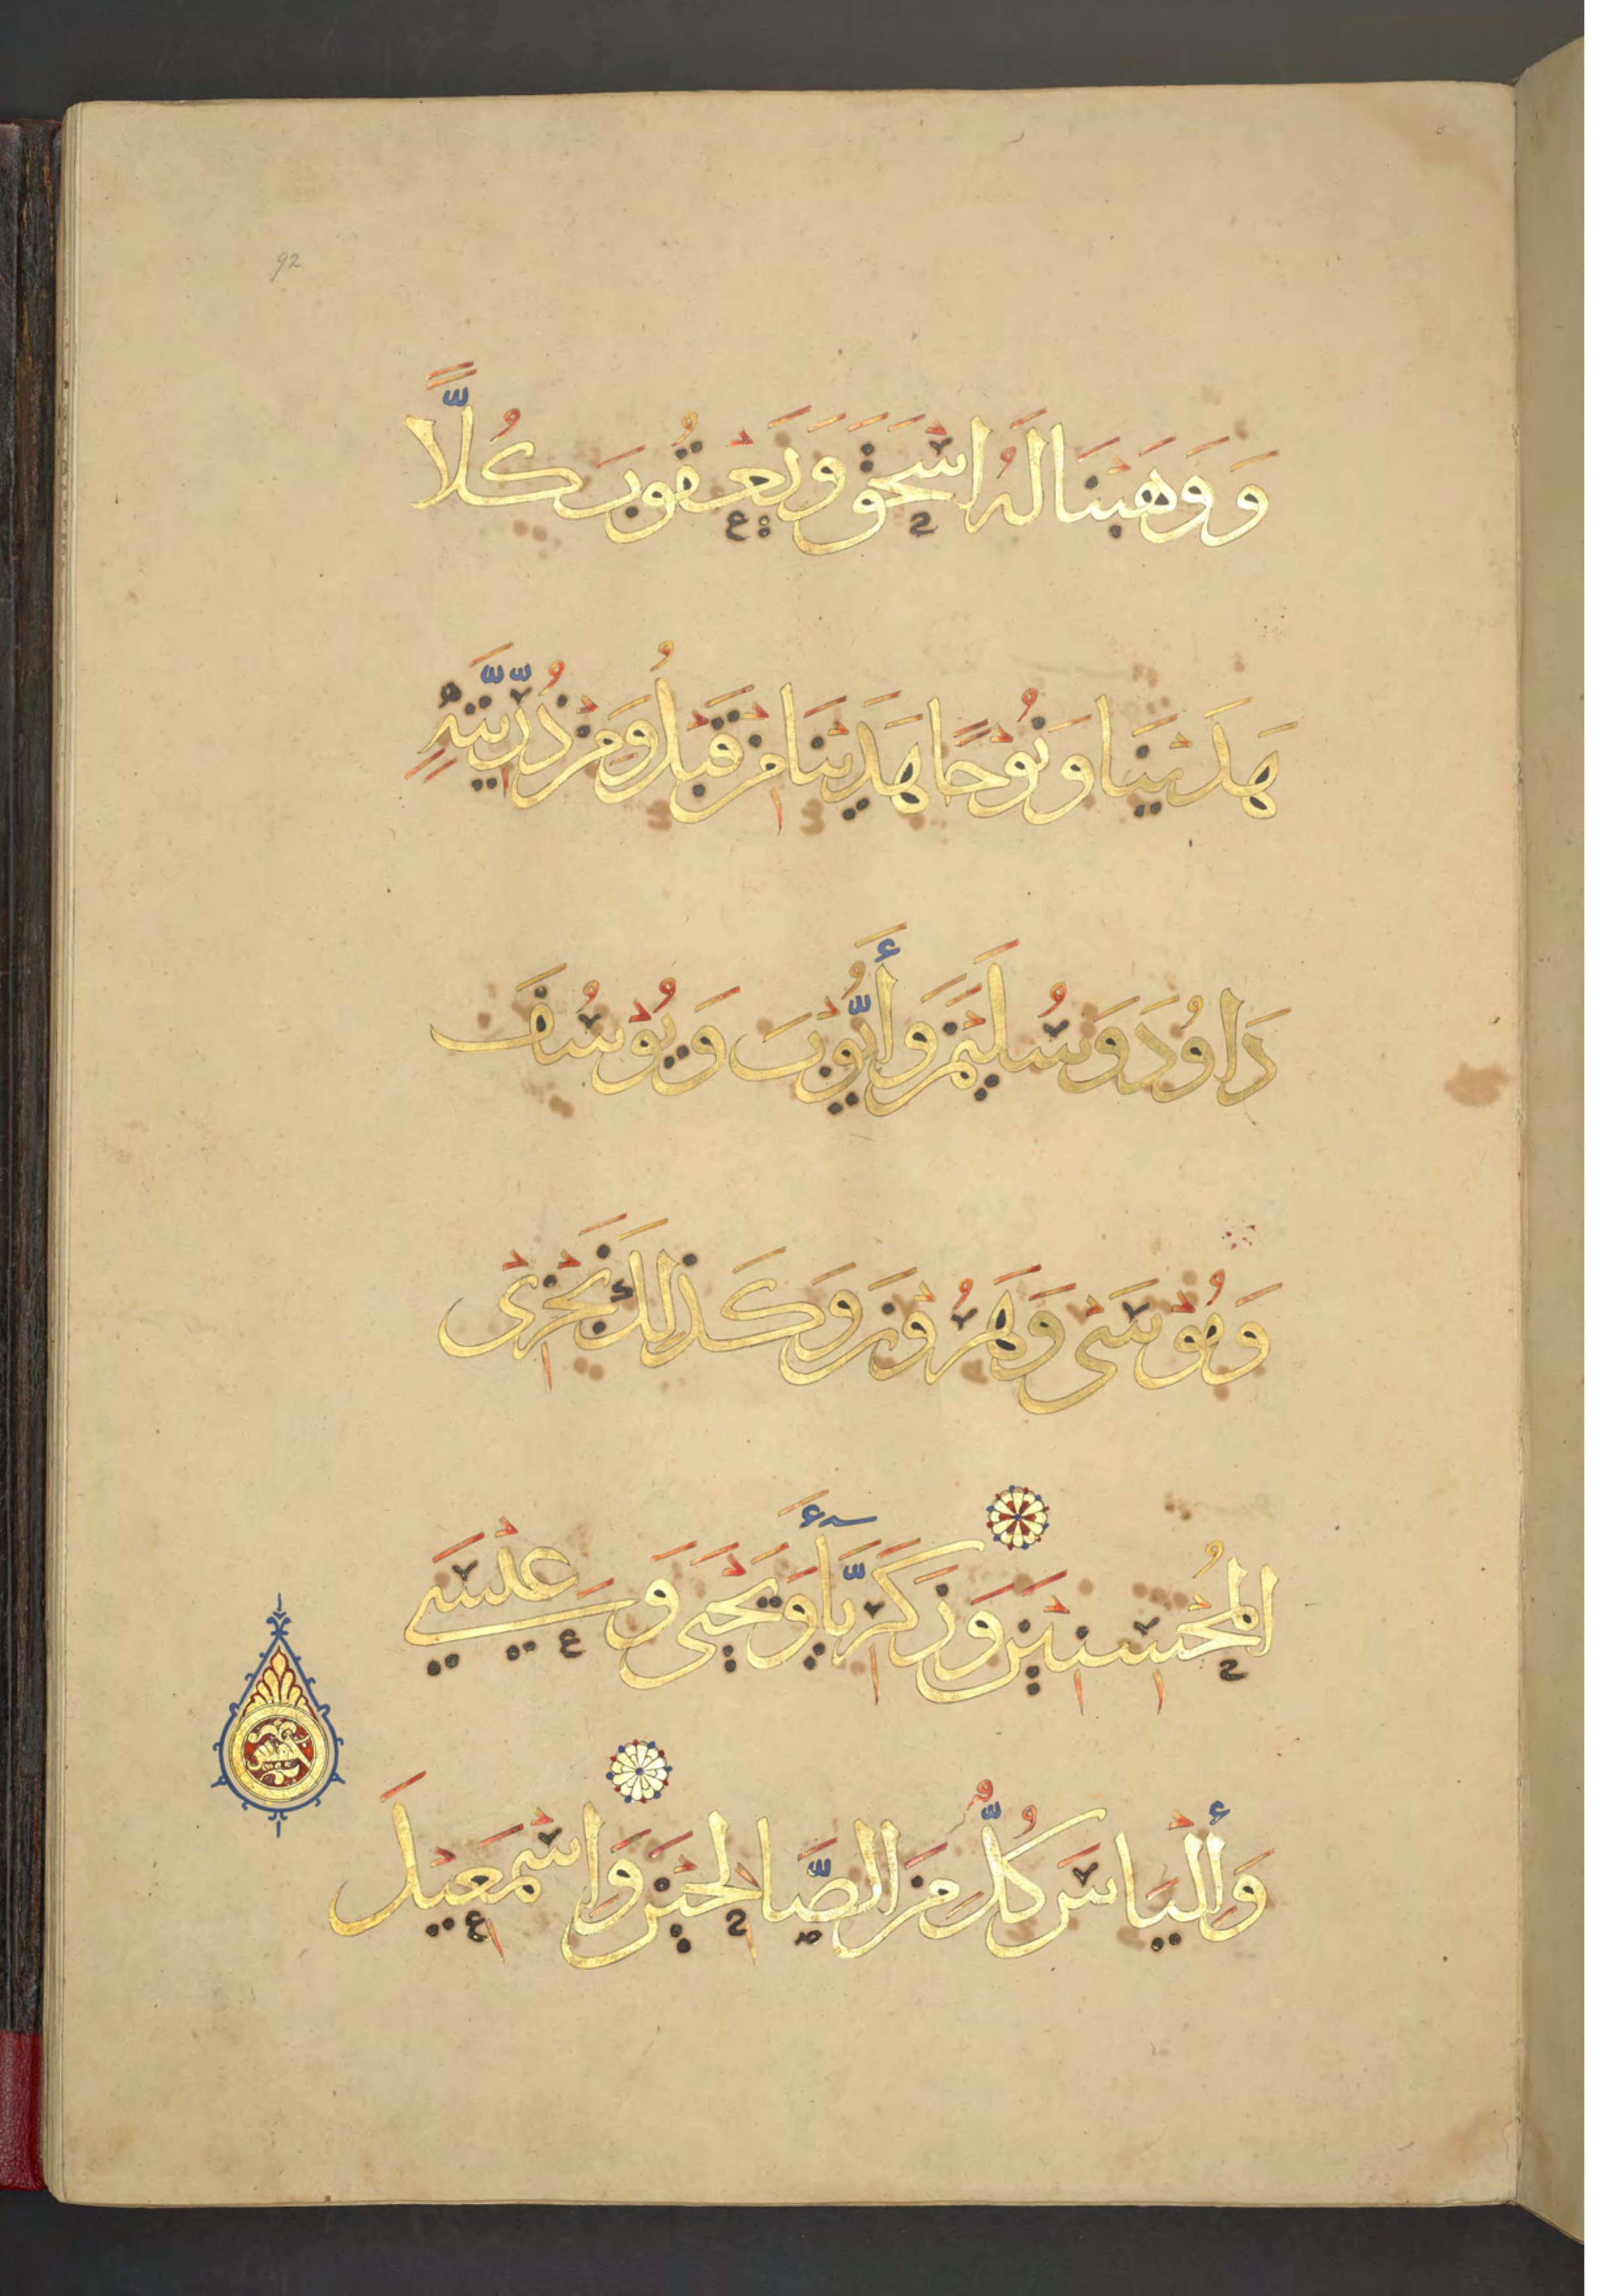 92
وَوَهَبْنَا لَهُ اسْحَقَ وَيَعْقُوبَ كُلًّا
هَدَيْنَا وَنُوْحًا هَدَيْنَا مِنْ قَبْلُ وَمِنْ ذُرِّيَّتِهِ
دَاوُدَ وَسُلَيْمَنَ وَأَيُّوْبَ وَيُوْسُفَ
وَمُوْسَى وَهَرُوْنَ وَكَذَلِكَ نَجْزِىْ
الْمُحْسِنِيْنَ وَزَكَرِيَّأَ وَيَحْيَى وَعِيْسَى
وَألْيَاسَ كُلٌّ مِنَ الصَّالِحِيْنَ وَاسْمَعِيْلَ